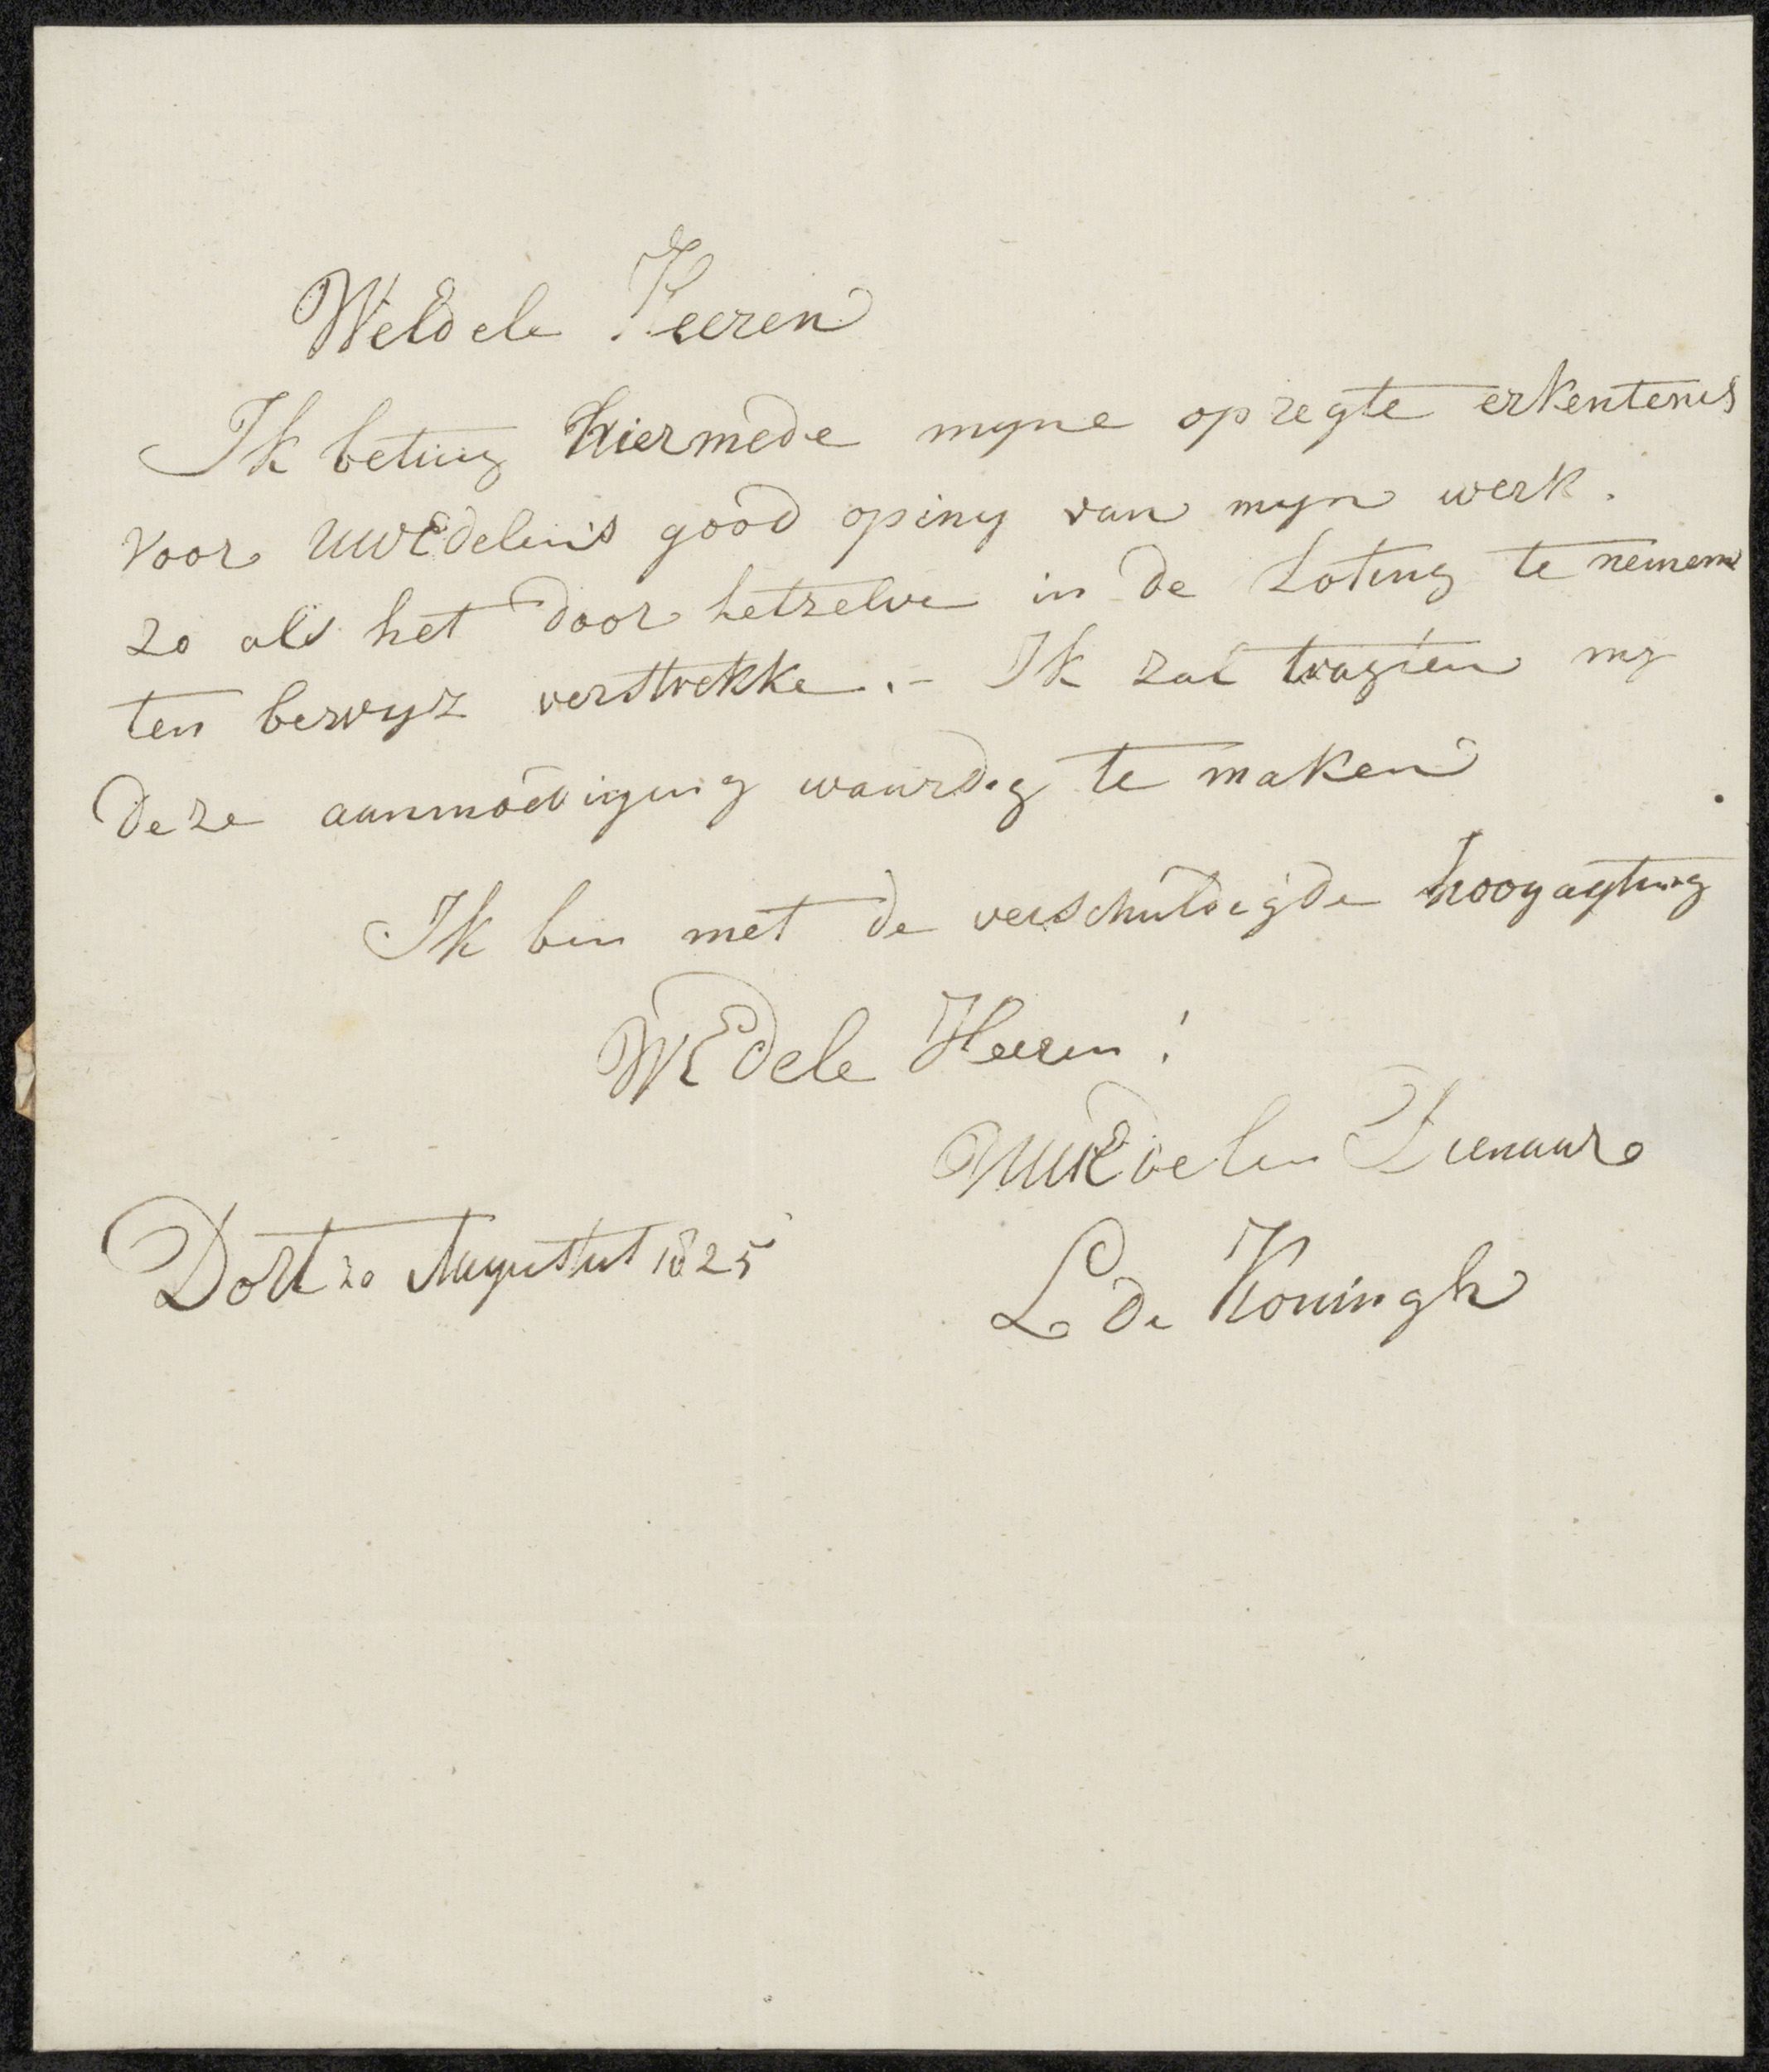 WelEdele Heeren
Ik betuig hiermede myne opregte erkentenis
voor UWEdelen's good opiny van myn werk.
zo als het door hetzelve in de Loting te nemen
ten bewyz verstrekke. - Ik zal tragten my
deze aanmoediging waardig te maken
Ik ben met de verschuldigde hoogagting
WEdele Heeren!
UWEdelen Dienaar
Dort 20 Augustus 1825
L de Koningh